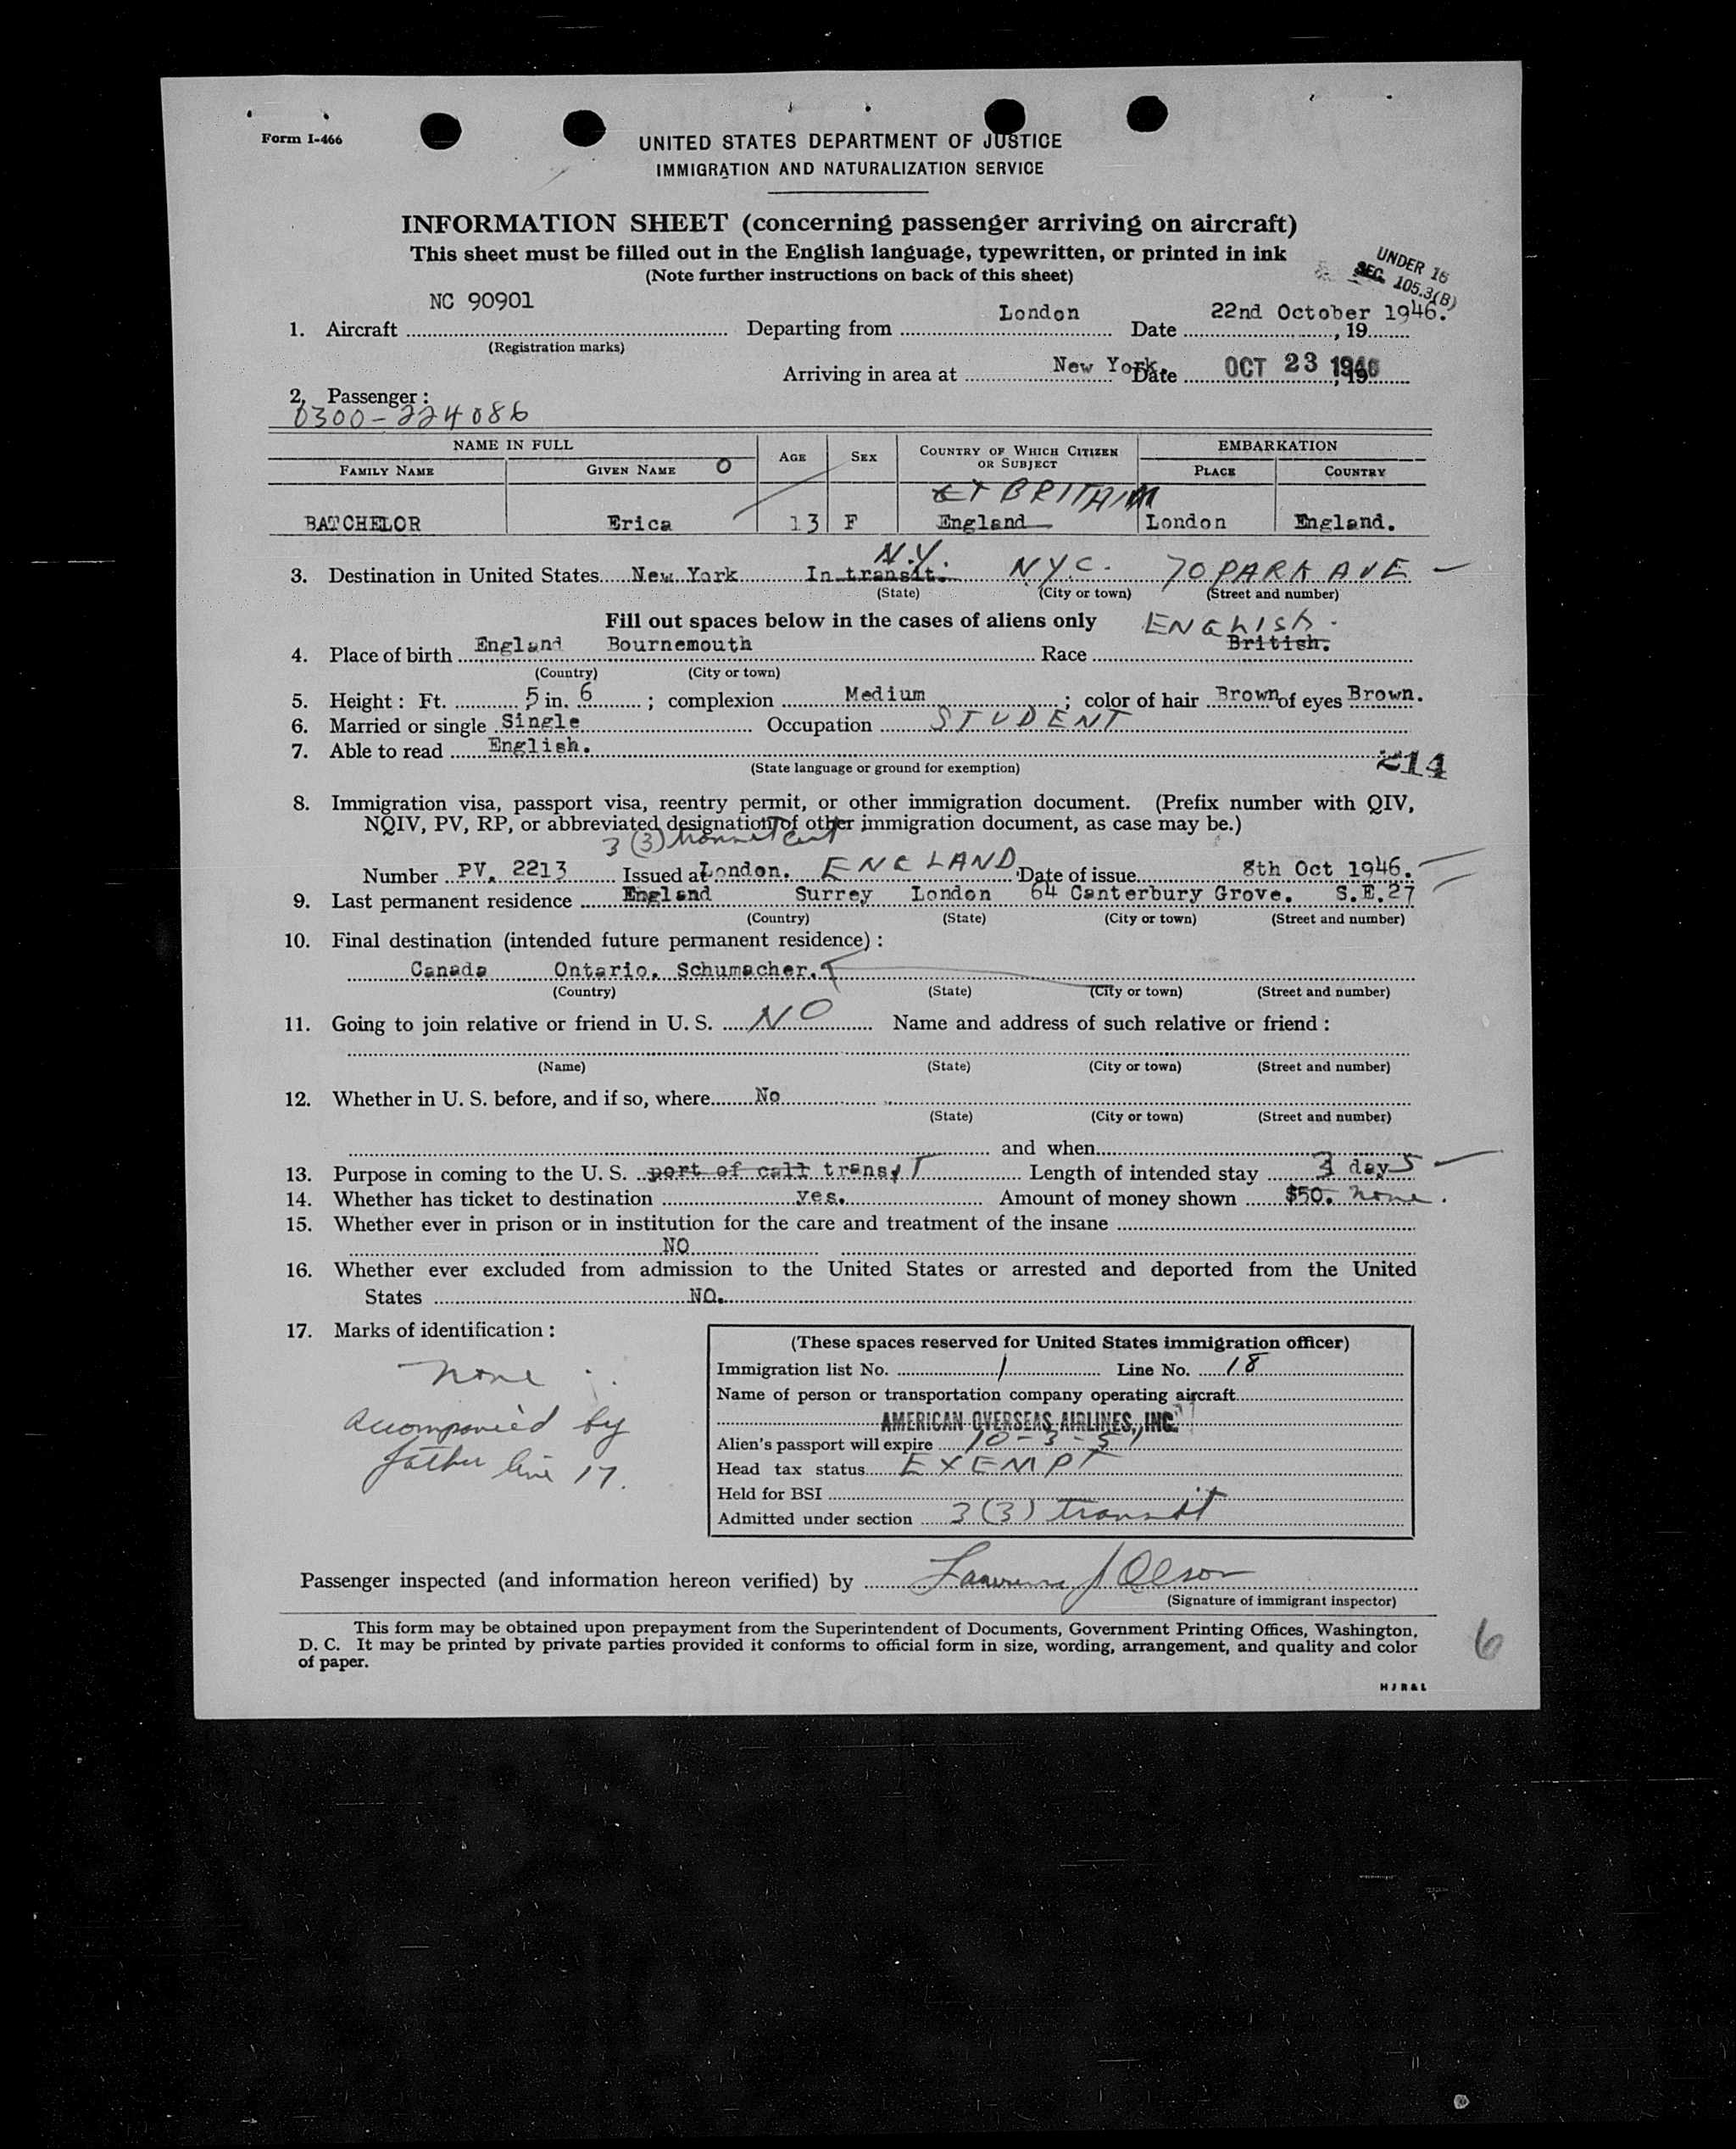 Form I-466
UNITED STATES DEPARTMENT OF JUSTICE
IMMIGRATION AND NATURALIZATION SERVICE
INFORMATION SHEET (concerning passenger arriving on aircraft)
This sheet must be filled out in the English language, typewritten, or printed in ink
(Note further instructions on back of this sheet)
UNDER 16
SEC. 105.3(B)
1. Aircraft NC 90901 Departing from London Date 22nd October 1946. , 19
(Registration marks)
Arriving in area at New York. Date OCT 23 1946 , 19
2. Passenger :
0300-224086
NAME IN FULL AGE SEX COUNTRY OF WHICH CITIZEN OR SUBJECT EMBARKATION
FAMILY NAME GIVEN NAME O PLACE COUNTRY
GT BRITAIN
BATCHELOR Erica 13 F England London England.
N.Y.
3. Destination in United States New York In transit. N.Y.C. 70 PARK AVE
(State) (City or town) (Street and number)
Fill out spaces below in the cases of aliens only
ENGLISH.
4. Place of birth England Bournemouth Race British.
(Country) (City or town)
5. Height : Ft. 5 in. 6 ; complexion Medium ; color of hair Brown of eyes Brown.
6. Married or single Single Occupation STUDENT
7. Able to read English.
(State language or ground for exemption)
214
8. Immigration visa, passport visa, reentry permit, or other immigration document. (Prefix number with QIV,
NQIV, PV, RP, or abbreviated designation of other immigration document, as case may be.)
3 (3) transit cert
Number PV. 2213 Issued at London. ENGLAND Date of issue 8th Oct 1946.
9. Last permanent residence England Surrey London 64 Canterbury Grove. S.E.27
(Country) (State) (City or town) (Street and number)
10. Final destination (intended future permanent residence) :
Canada Ontario. Schumacher.
(Country) (State) (City or town) (Street and number)
11. Going to join relative or friend in U. S. NO Name and address of such relative or friend :
(Name) (State) (City or town) (Street and number)
12. Whether in U. S. before, and if so, where No
(State) (City or town) (Street and number)
and when
13. Purpose in coming to the U. S. port of call transit Length of intended stay 3 days
14. Whether has ticket to destination yes. Amount of money shown $50. none.
15. Whether ever in prison or in institution for the care and treatment of the insane
NO
16. Whether ever excluded from admission to the United States or arrested and deported from the United
States NO.
17. Marks of identification :
none
accompanied by
father line 17.
(These spaces reserved for United States immigration officer)
Immigration list No. 1 Line No. 18
Name of person or transportation company operating aircraft
AMERICAN OVERSEAS AIRLINES, INC.
Alien's passport will expire 10-3-51
Head tax status EXEMPT
Held for BSI
Admitted under section 3(3) transit
Passenger inspected (and information hereon verified) by Lawrence J Olson
(Signature of immigrant inspector)
This form may be obtained upon prepayment from the Superintendent of Documents, Government Printing Offices, Washington,
D. C. It may be printed by private parties provided it conforms to official form in size, wording, arrangement, and quality and color
of paper.
6
H J R & L